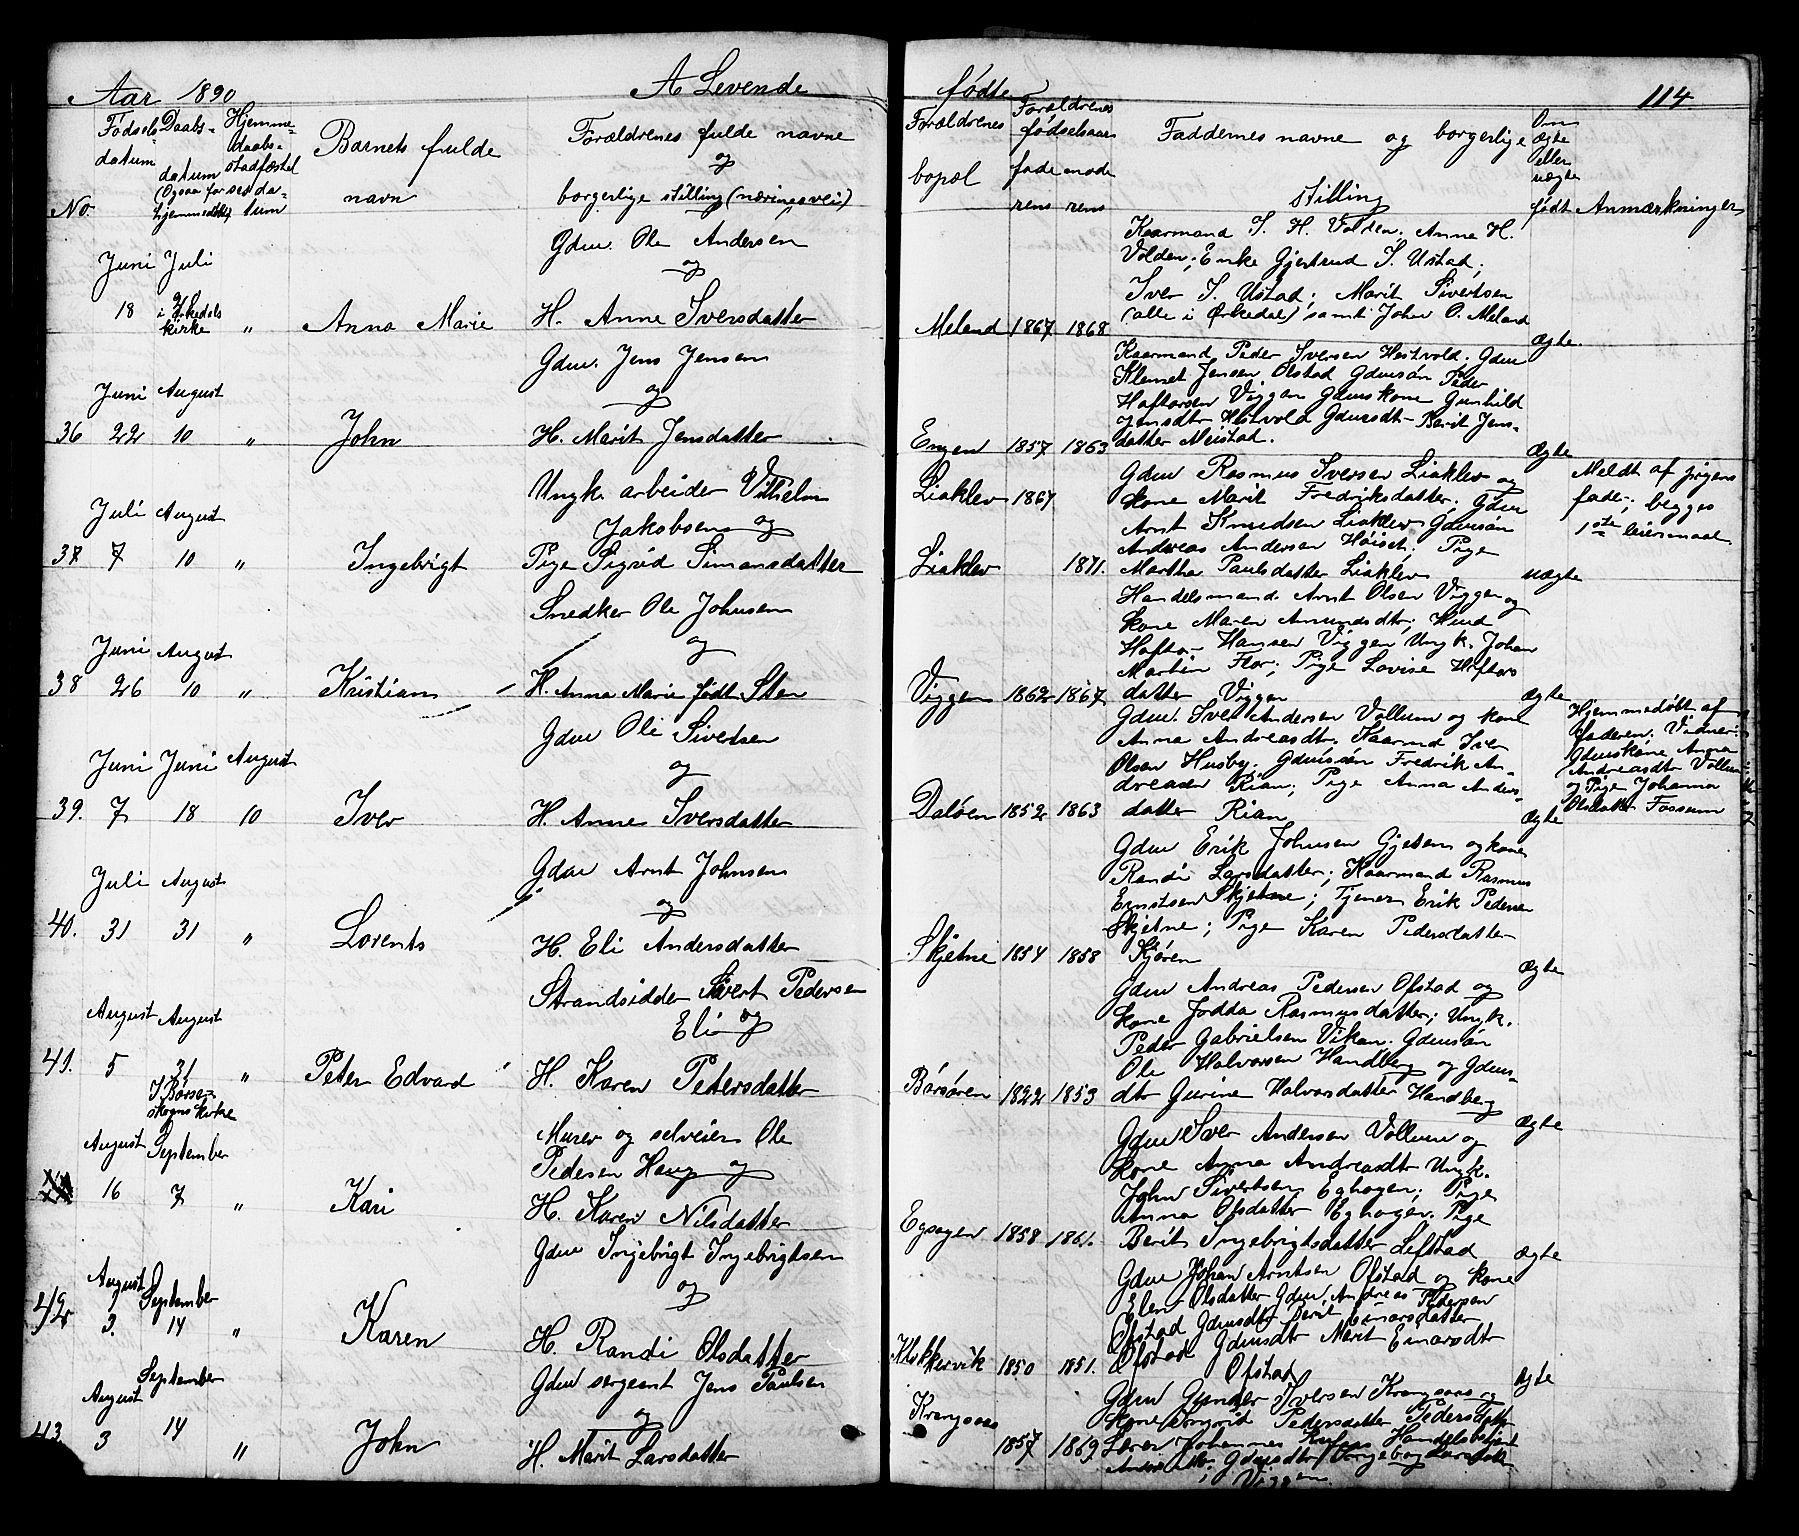 Aar 1890
A Levende
No.
Fødsels datum
Daabs- datum (Ogsaa for hjemmedøbte)
Hjemme- daabs- stadfæstel sesda- tum
Barnets fulde navn
Forældrenes fulde navne
og
borgerlige stilling (næringsvei)
Juni Juli
18 i Orkedals kirke "
Anna Marie
Gdm. Ole Andersen
og
H. Anne Iversdatter
Juni August
36 22 10 "
John
Gdm. Jens Jensen
og
H. Marit Jensdatter
Juli August
37 7 10 "
Ingebrigt
Ungk. arbeider Vilhelm
Jakobsen og
Pige Sigrid Simonsdatter
Juni August
38 26 10 "
Kristian
Snedker Ole Johnsen
og
H. Anna Marie født Sten
Juni Juni August
39. 7 18 10
Iver
Gdm Ole Sivertsen
og
H. Anne Iversdatter
Juli August
40. 31 31 "
Lorents
Gdm Arnt Johnsen
og
H. Eli Andersdatter
August August
41. 5 31 "
I Børse- skogns kirke
Peter Edvard
Strandsidder Sivert Pedersen
Eli og
H. Karen Petersdatter
August September
16 7 "
Kari
Murer og selveier Ole
Pedersen Haug og
H. Karen Nilsdatter
August September
42 3. 14 "
Karen
Gdm Ingebrigt Ingebrigtsen
og
H. Randi Olsdatter
August September
43 3 14 "
John
Gdm sergeant Jens Paulsen
og
H. Marit Larsdatter
fødte
114
Forældrenes bopæl
Forældrenes fødselsaar
fade rens
mode rens
Faddernes navne og borgerlige
stilling
Om ægte eller uægte født
Anmærkninger
Kaarmand I. H. Volden. Anne H.
Volden; Enke Gjertrud I. Ustad;
Iver I. Ustad; Marit Sivertsen
Meland 1867 1868 (alle i Ørkedal) samt John O. Meland
Ægte.
Kaarmand Peder Iversen Hestvold. Gdm
Klemet Jensen Olstad Gdmsøn Peder
Haftorsen Viggen Gdmskone Gunhild
Jensdtr Hestvold Gdmsdt- Berit Jens-
Engen 1857 1863 datter Meistad.
Ægte
Gdm Rasmus Iversen Liaklev og
Liaklev 1867 kone Marit Fredriksdatter. Gdm
Arnt Knudsen Liaklev Gdmsøn
Andreas Andersen Høiset; Pige
Liaklev 1871. Martha Paulsdatter Liaklev
uægte
Meldt af pigens
fader; begges
1ste leiermaal.
Handelsmand Arnt Olsen Viggen og
kone Maren Amundsdtr;
Haftor Hansen Viggen Ungk. Johan
Martin Flor; Pige Lovise Haftors
Viggen 1862 1867. datter Viggen
Ægte
Gdm. Iver Andersen Vollum og kone
Anna Andreasdtr. Kaarmd Iver
Olsen Husby. Gdmsøn Fredrik An-
dreasen Rian; Pige Anna Anders-
Daløen 1852 1863 datter Rian
Ægte
Hjemmedøbt af
faderen. Vidner:
Gdmskone Anna
Andreasdtr Vollum
og Pige Johanna
Olsdatter Fossum
Gdm Erik Johnsen Gjeten og kone
Randi Larsdatter; Kaarmand Rasmus
Erntsen Skjetne; Tjener Erik Pedersen
Skjetne; Pige Karen Pedersdatter
Skjetne 1854 1858 Kjøren
Ægte
Gdm Andreas Pedersen Ofstad og
kone Jodda Rasmusdatter; Ungk.
Peder Gabrielsen Vikan. Gdmsøn
Ole Halvorsen Handberg og Gdms-
Børsøren 1822 1853 dtr Gurine Halvorsdatter Handberg
Ægte
Gdm Iver Andersen Vollum og
kone Anna Andreasdtr Ungk.
John Sivertsen Eghogen; Pige
Anna Olsdatter Eghogen. Pige
Eghogen 1858 1861. Berit Ingebrigtsdatter Leftstad
ægte
Gdm Johan Arntsen Ofstad og kone
Elen Olsdatter Gdm. Andreas Pedersen
Ofstad Gdmsdtr Berit Einarsdatter
Ofstad Gdmsdtr Marit Einarsdtr
Klokkervik 1850 1851. Ofstad
Ægte
Gdm Gunder Iversen Krangsaas og
Krangsaas kone Ingrid Pedersdatter
1857 1869 Lærer Johannes Handelsbetjent
Viggen